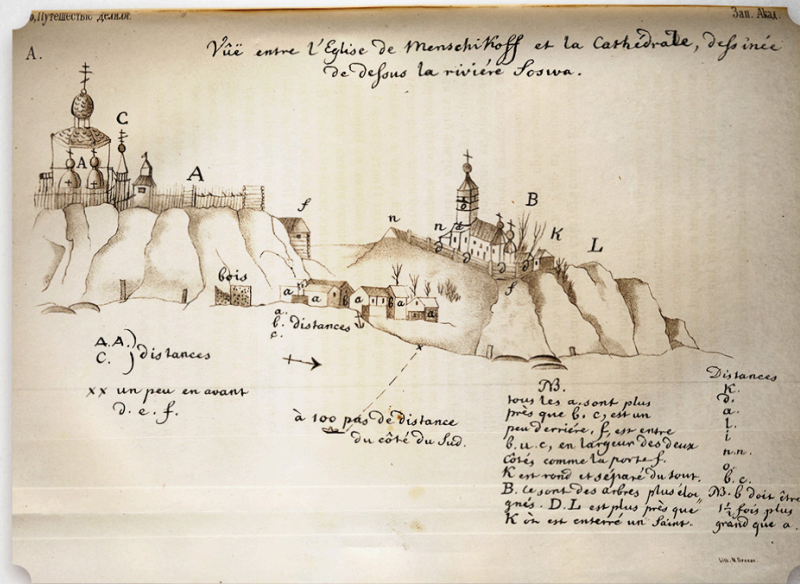 Путешествію делиля.
Зап. Акад.
A.
Vûë entre l'Eglise de Menschikoff et la Cathédrale, dessinée
de dessus la riviére Soswa.
C
A
A
f
B
n
n
K
L
d d d d
f
bois
a a a a a
a.
b. distances
c.
A. A.
C. ) distances
xx un peu en avant
d. e. f.
à 100 pas de distance
du côté du Sud.
NB.
tous les a. sont plus
près que b. c, est un
peu derriére. f, est entre
b. u. c, en largeur des deux
côtés comme la porte f.
K est rond et séparé du tout.
B. ce sont des arbres plus éloi
gnés. D. L est plus près que
K où est enterré un Saint.
Distances
K.
d.
a.
l.
i
n.n.
o.
b. c.
NB. b doit être
1½ fois plus
grand que a.